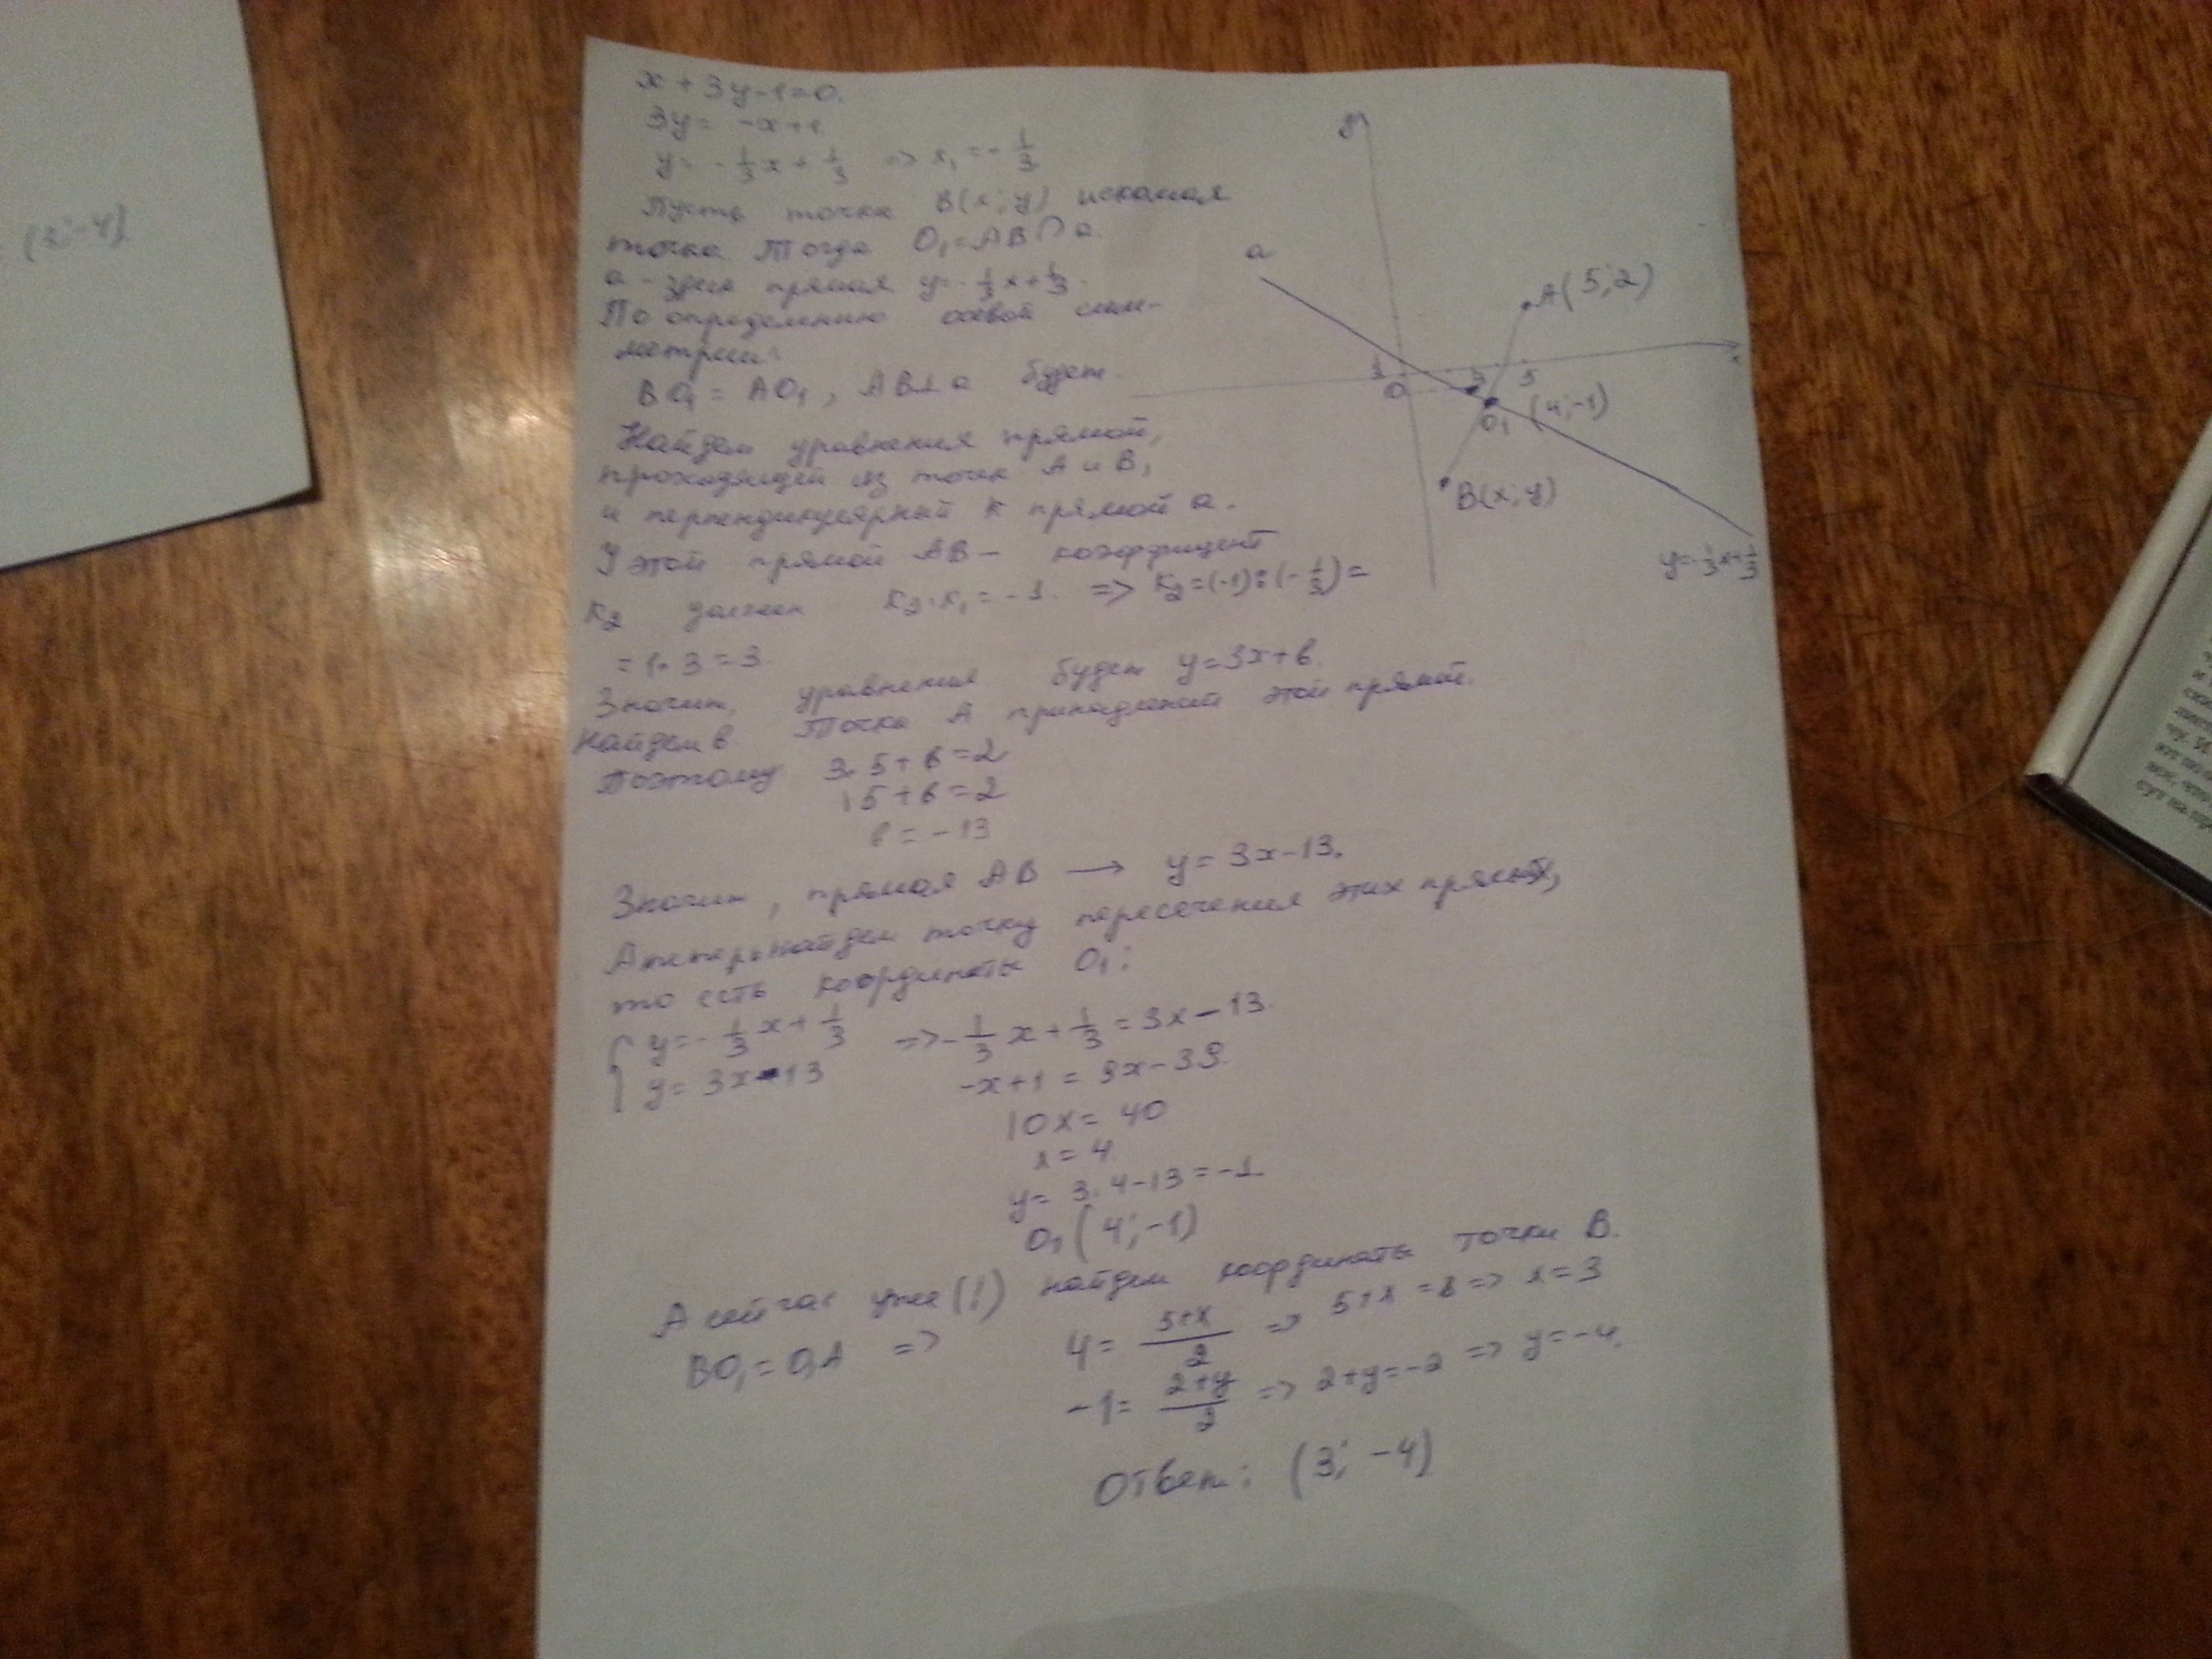 x + 3y - 1 = 0.
3y = -x+1
y = -1/3 x + 1/3 => к₁ = -1/3
Пусть точка B(x; y) искомая
точка. Тогда O₁ = AB ∩ a.
a - здесь прямая y = -1/3 x + 1/3.
По определению осевой сим-
метрии:
BO₁ = AO₁, AB ⊥ a будет.
Найдем уравнения прямой,
проходящей из точек A и B,
и перпендикулярный к прямой a.
У этой прямой AB - коэффицент
к₂ должен к₂·к₁ = -1. => к₂ = (-1):(-1/3) =
= 1·3 = 3.
Значит, уравнения будет y = 3x + b.
Найдем b. Точка A принадлежит этой прямой.
Поэтому 3·5 + b = 2
15 + b = 2
b = -13
Значит, прямая AB → y = 3x - 13.
А теперь найдем точку пересечения этих прямых,
то есть координаты O₁:
{ y = -1/3 x + 1/3 => -1/3 x + 1/3 = 3x - 13.
y = 3x - 13
-x + 1 = 9x - 39.
10x = 40
x = 4
y = 3·4 - 13 = -1.
O₁ (4; -1)
А сейчас уже (!) найдем координаты точки B.
BO₁ = O₁A => 4 = (5+x)/2 => 5+x = 8 => x = 3
-1 = (2+y)/2 => 2+y = -2 => y = -4.
Ответ: (3; -4)
y
a
A(5; 2)
x
1
0
4
5
O₁ (4; -1)
B(x; y)
y = -1/3 x + 1/3
(3; -4)